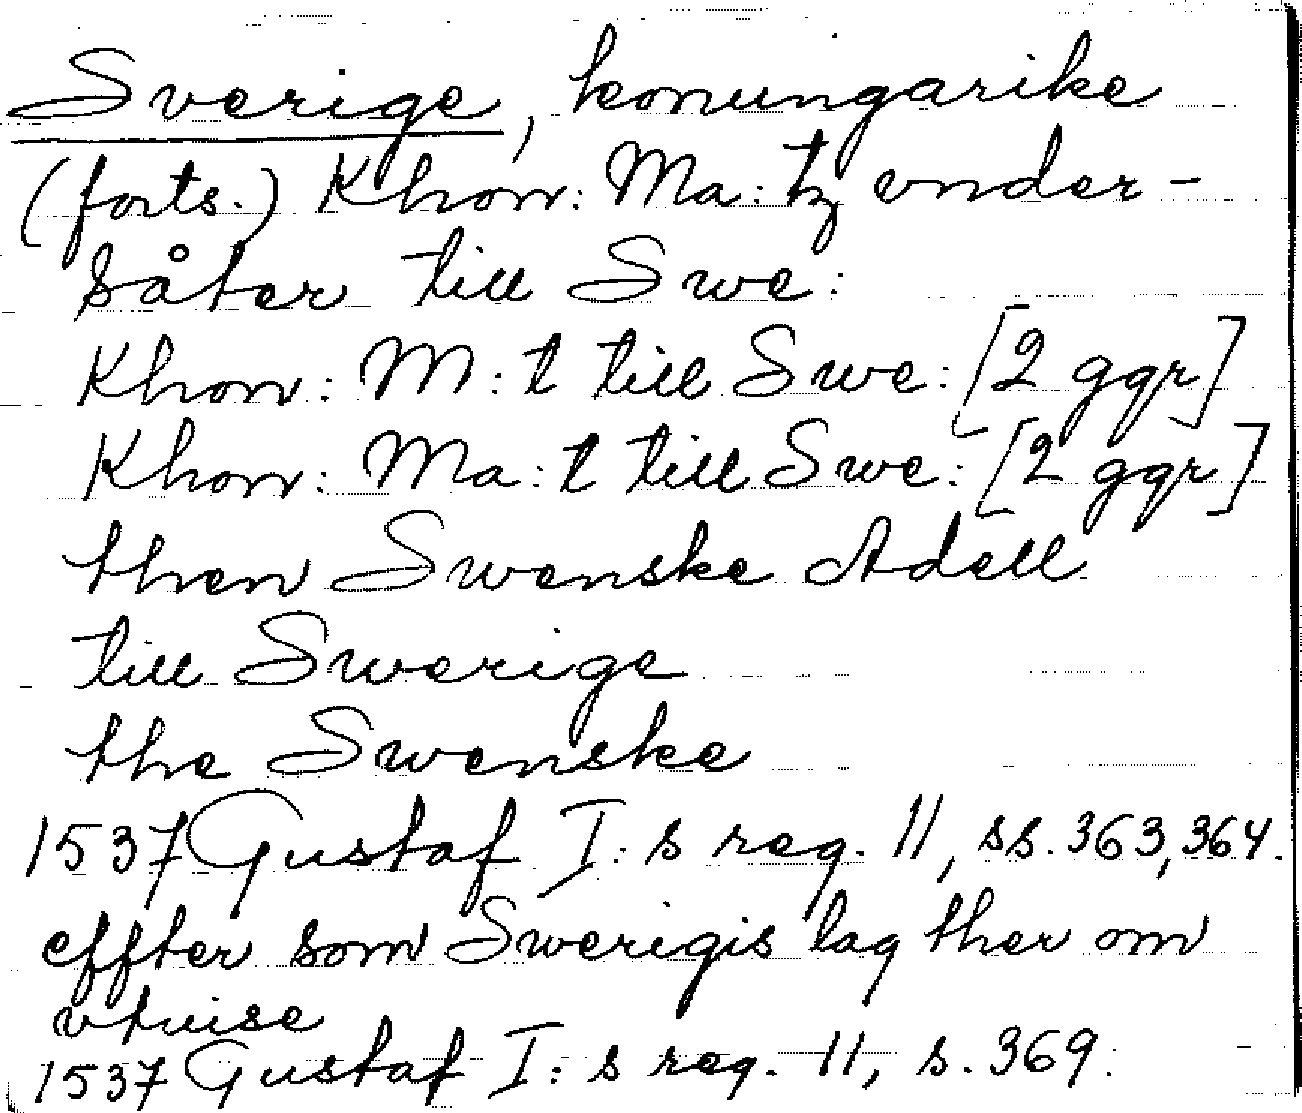 Sverige, konungarike
(forts.) Khon: Ma: tz vnder-
såter till Swe:
Khon: M: t till Swe: [2 ggr]
Khon: Ma: t till Swe: [2 ggr]
then Swenske Adell
till Swerige
the Swenske
1537 Gustaf I: s reg. 11, ss. 363, 364.
effter som Swerigis lag ther om
vtuise
1537 Gustaf I: s reg. 11, s. 369.